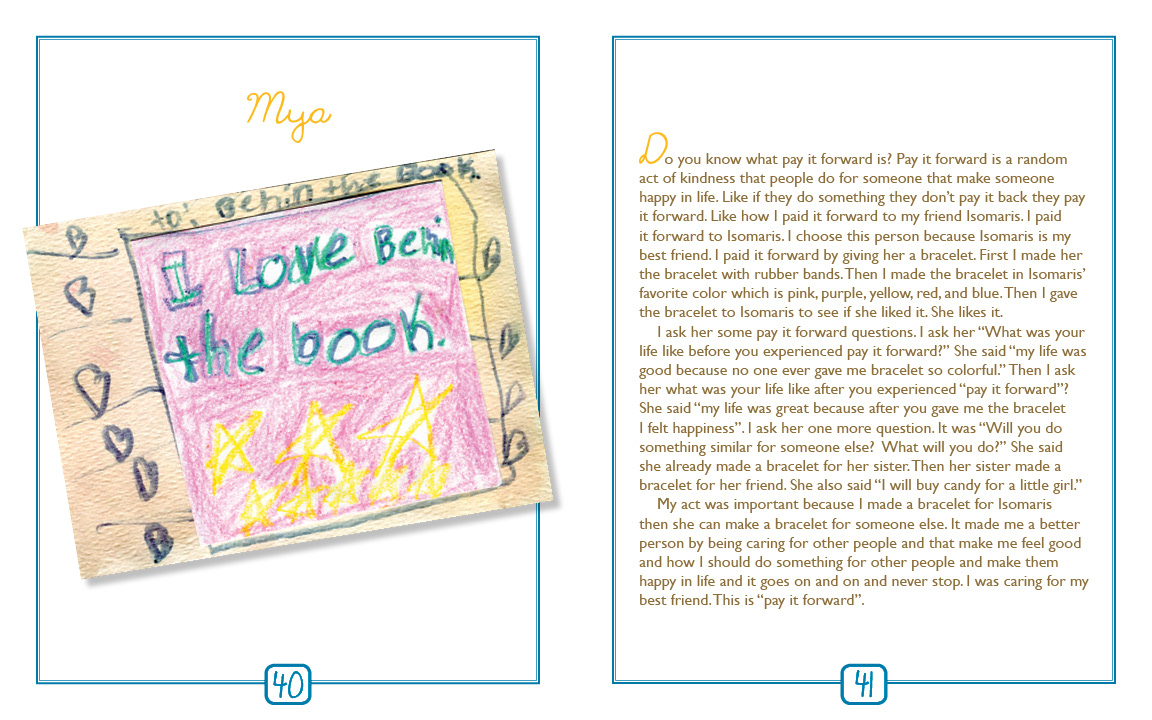 Mya
to: Behin the Book.
I Love Behin
the book.
40
Do you know what pay it forward is? Pay it forward is a random
act of kindness that people do for someone that make someone
happy in life. Like if they do something they don’t pay it back they pay
it forward. Like how I paid it forward to my friend Isomaris. I paid
it forward to Isomaris. I choose this person because Isomaris is my
best friend. I paid it forward by giving her a bracelet. First I made her
the bracelet with rubber bands. Then I made the bracelet in Isomaris’
favorite color which is pink, purple, yellow, red, and blue. Then I gave
the bracelet to Isomaris to see if she liked it. She likes it.
I ask her some pay it forward questions. I ask her “What was your
life like before you experienced pay it forward?” She said “my life was
good because no one ever gave me bracelet so colorful.” Then I ask
her what was your life like after you experienced “pay it forward”?
She said “my life was great because after you gave me the bracelet
I felt happiness”. I ask her one more question. It was “Will you do
something similar for someone else?  What will you do?” She said
she already made a bracelet for her sister. Then her sister made a
bracelet for her friend. She also said “I will buy candy for a little girl.”
My act was important because I made a bracelet for Isomaris
then she can make a bracelet for someone else. It made me a better
person by being caring for other people and that make me feel good
and how I should do something for other people and make them
happy in life and it goes on and on and never stop. I was caring for my
best friend. This is “pay it forward”.
41